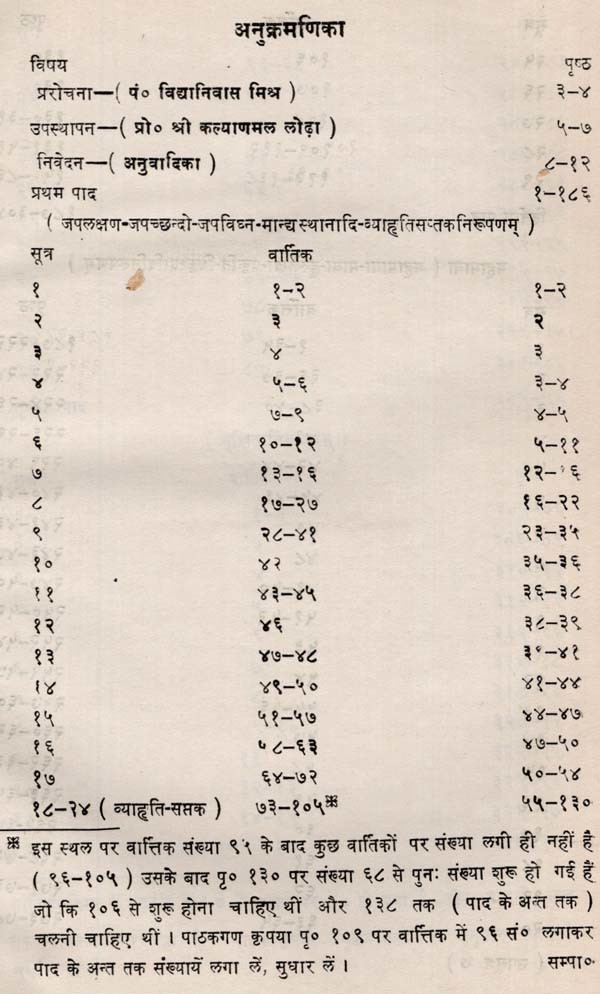 अनुक्रमणिका
विषय पृष्ठ
प्ररोचना—( पं० विद्यानिवास मिश्र ) ३–४
उपस्थापन—( प्रो० श्री कल्याणमल लोढ़ा ) ५–७
निवेदन—( अनुवादिका ) ८–१२
प्रथम पाद १–१८६
( जपलक्षण-जपच्छन्दो-जपविघ्न-मान्द्यस्थानादि-व्याहृतिसप्तकनिरूपणम् )
सूत्र वार्तिक
१ १–२ १–२
२ ३ २
३ ४ ३
४ ५–६ ३–४
५ ७–९ ४–५
६ १०–१२ ५–११
७ १३–१६ १२–१६
८ १७–२७ १६–२२
९ २८–४१ २३–३५
१० ४२ ३५–३६
११ ४३–४५ ३६–३८
१२ ४६ ३८–३९
१३ ४७–४८ ३९–४१
१४ ४९–५० ४१–४४
१५ ५१–५७ ४४–४७
१६ ५८–६३ ४७–५०
१७ ६४–७२ ५०–५४
१८–२४ ( व्याहृति-सप्तक ) ७३–१०५※ ५५–१३०
※ इस स्थल पर वार्त्तिक संख्या ९५ के बाद कुछ वार्तिकों पर संख्या लगी ही नहीं है
( ९६–१०५ ) उसके बाद पृ० १३० पर संख्या ६८ से पुनः संख्या शुरू हो गई हैं
जो कि १०६ से शुरू होना चाहिए थीं और १३८ तक ( पाद के अन्त तक )
चलनी चाहिए थीं । पाठकगण कृपया पृ० १०९ पर वार्त्तिक में ९६ सं० लगाकर
पाद के अन्त तक संख्यायें लगा लें, सुधार लें । सम्पा०